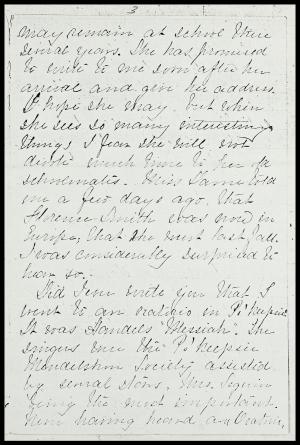 3
may remain at school there
several years. She has promised
to write to me soon after her
arrival and give her address.
I hope she may, but when
she sees so many interesting
things I fear she will not
devote much time to her old
schoolmates. Miss told
me a few days ago, that
Florence Smith was now in
Europe, that she went last fall.
I was considerably surprised to
hear so.
Did I ever write you that I
went to an oratorio in Po'keepsie
It was Handels "Messiah". The
singers were the Po'keepsie
Mendelssohn Society assisted
by several stars, Mrs. Seguin
being the most important.
Never having heard an Oratorio,